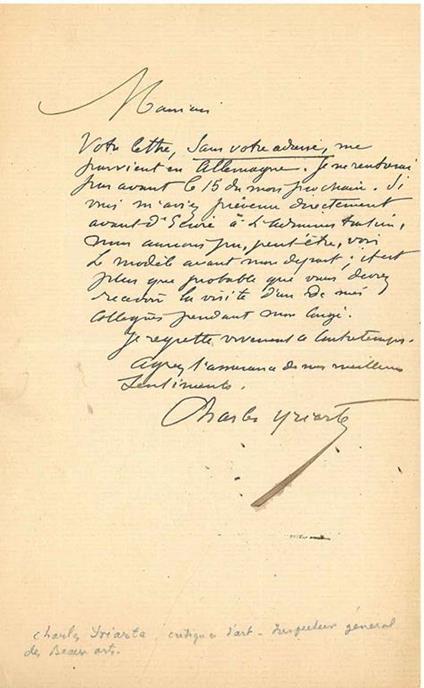 Monsieur
Votre lettre, sans votre adresse, me
parvient en Allemagne. Je ne rentrerai
pas avant le 15 du mois prochain. Si
vous m'aviez prévenu directement
avant d'Écrire à L'administration,
nous aurions pu, peut-être, voir
Le modèle avant mon départ ; il est
plus que probable que vous devrez
recevoir la visite d'un de mes
Collegues pendant mon congé.
Je regrette vivement ce Contretemps.
Agréez l'assurance de mes meilleurs
Sentiments.
Charles Yriarte
Charles Yriarte, critique d'art - Inspecteur général
des Beaux arts.